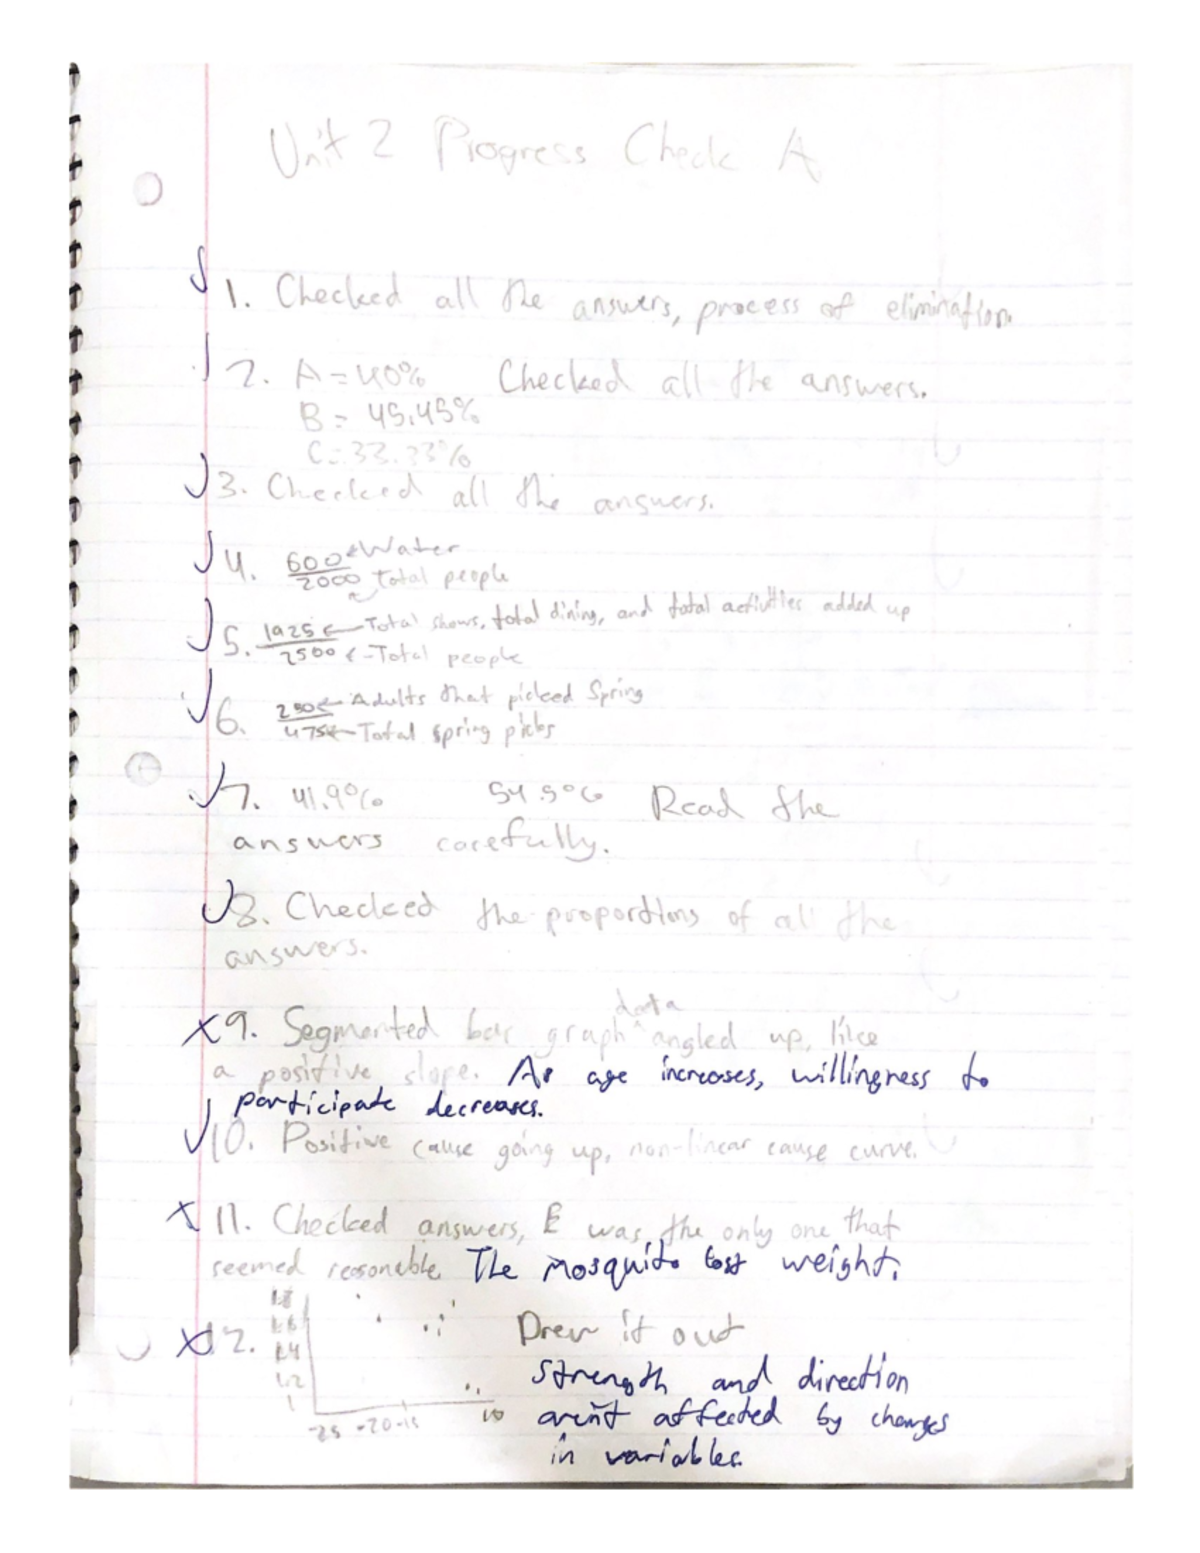 Unit 2 Progress Check A
1. Checked all the answers, process of elimination.
2. A = 40% Checked all the answers.
B = 45.45%
C = 33.33%
3. Checked all the answers.
4. 600 ← Water
2000 total people
5. 1925 ← Total shows, total dining, and total activities added up
2500 ← Total people
6. 230 ← Adults that picked Spring
475 ← Total spring picks
7. 41.9% 54.5% Read the
answers carefully.
8. Checked the proportions of all the
answers.
data
9. Segmented bar graph ^ angled up, like
a positive slope. As age increases, willingness to
participate decreases.
10. Positive cause going up, non-linear cause curve.
11. Checked answers, E was the only one that
seemed reasonable. The mosquito lost weight.
12. Drew it out
1.8
1.6
1.4
1.2
1
-25 -20 -15 10
strength and direction
aren't affected by changes
in variables.